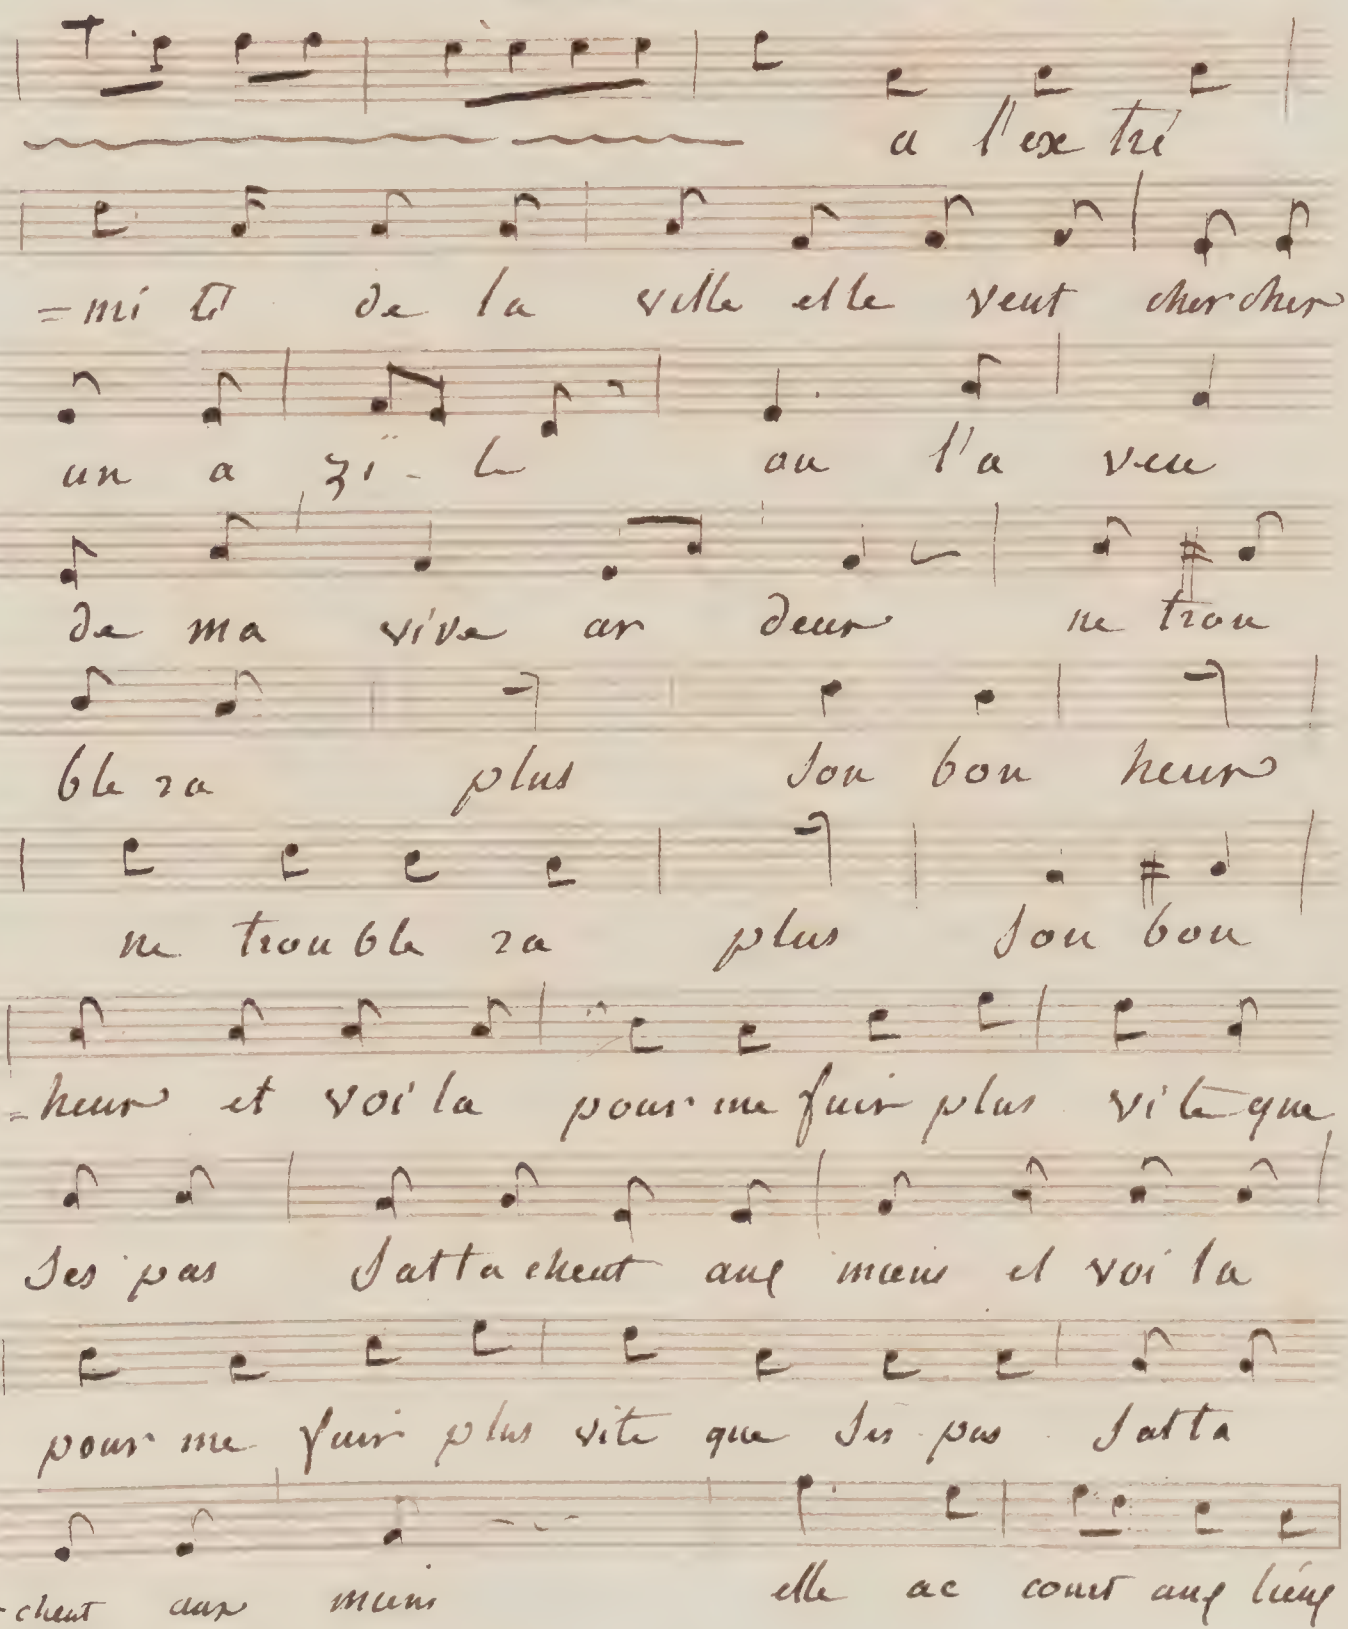 a l'ex tré
=mi té de la ville elle veut chercher
un a zï - le ou l'a veu
de ma vive ar deur ne trou
ble ra plus son bon heur
ne trou ble ra plus son bon
=heur et voi la pour me fuir plus vite que
ses pas satta chent aux miens et voi la
pour me fuir plus vite que ses pas satta
-chent aux miens elle ac court aux lieux